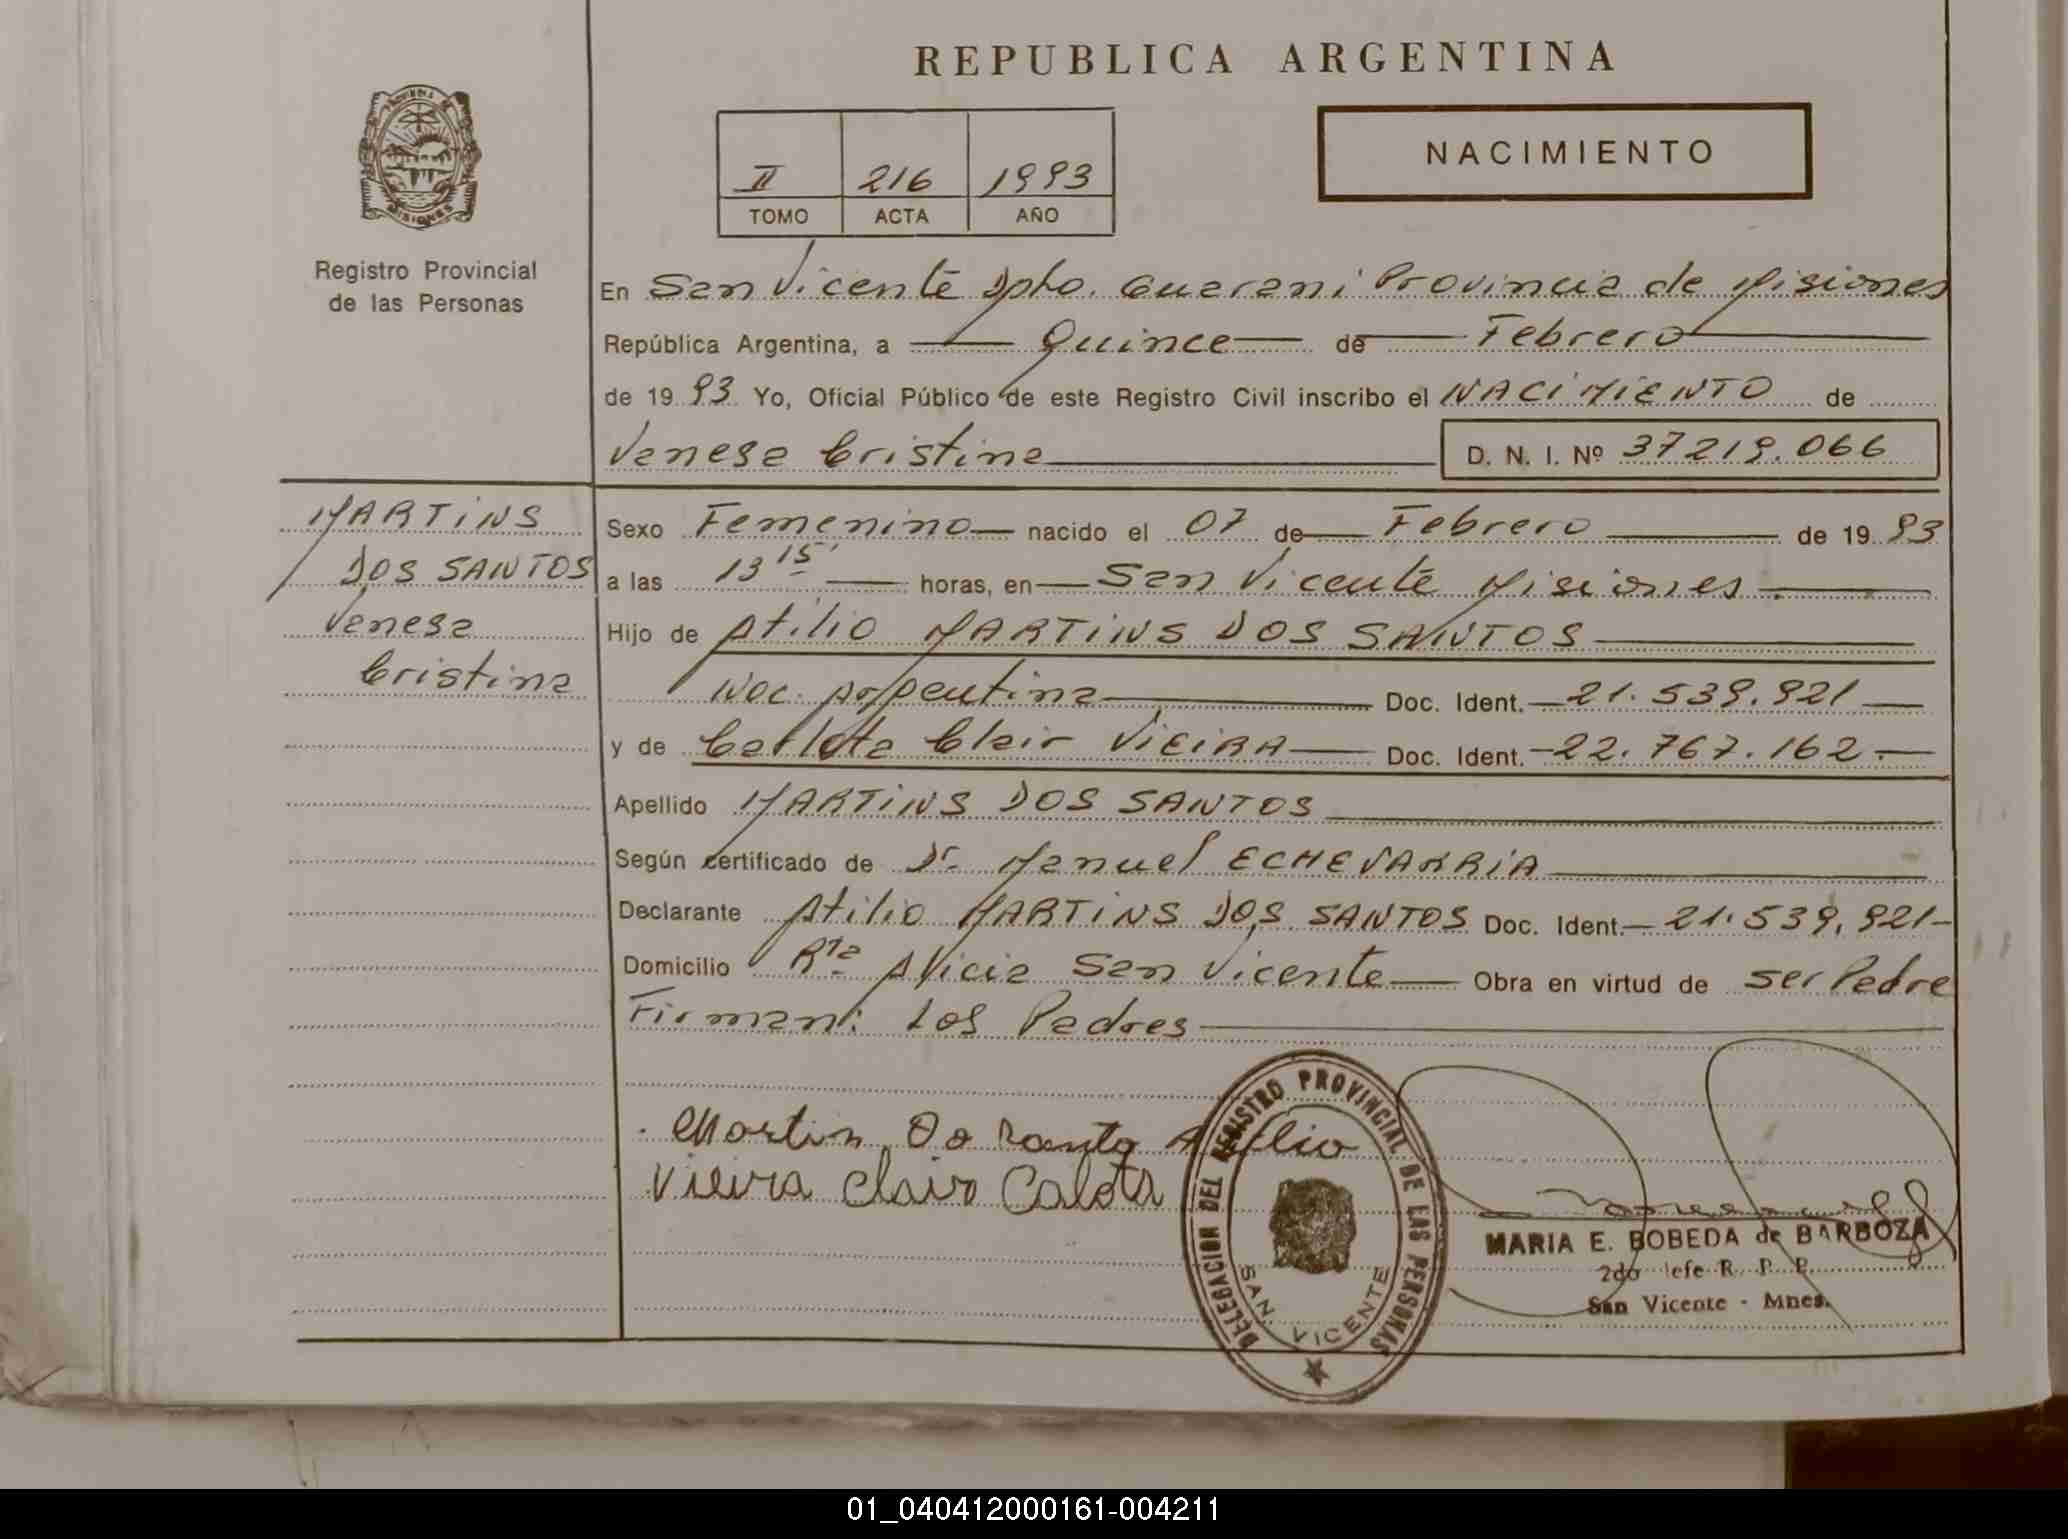 REPUBLICA ARGENTINA
PROVINCIA DE
MISIONES
Registro Provincial
de las Personas
II 216 1993
TOMO ACTA AÑO
NACIMIENTO
En San Vicente Dpto. Guarani Provincia de Misiones
República Argentina, a Quince de Febrero
de 19 93 Yo, Oficial Público de este Registro Civil inscribo el NACIMIENTO de
Vanesa Cristina D. N. I. Nº 37219.066
MARTINS
DOS SANTOS
Vanesa
Cristina
Sexo Femenino nacido el 07 de Febrero de 19 93
a las 13 15 horas, en San Vicente Misiones.
Hijo de Atilio MARTINS DOS SANTOS
Nac. Argentina Doc. Ident. 21.539.921
y de Carlota Clair VIEIRA Doc. Ident. 22.767.162.
Apellido MARTINS DOS SANTOS
Según certificado de Dr. Manuel ECHEVARRIA
Declarante Atilio MARTINS DOS SANTOS Doc. Ident. 21.539.921
Domicilio Rta Alicia San Vicente Obra en virtud de ser Padre
Firman: Los Padres
Martin Do Santo Atilio
Vieira Clair Calota
DELEGACION DEL REGISTRO PROVINCIAL DE LAS PERSONAS
SAN VICENTE
MARIA E. BOBEDA de BARBOZA
2do Jefe R. P. P.
San Vicente - Mnes.
01_040412000161-004211